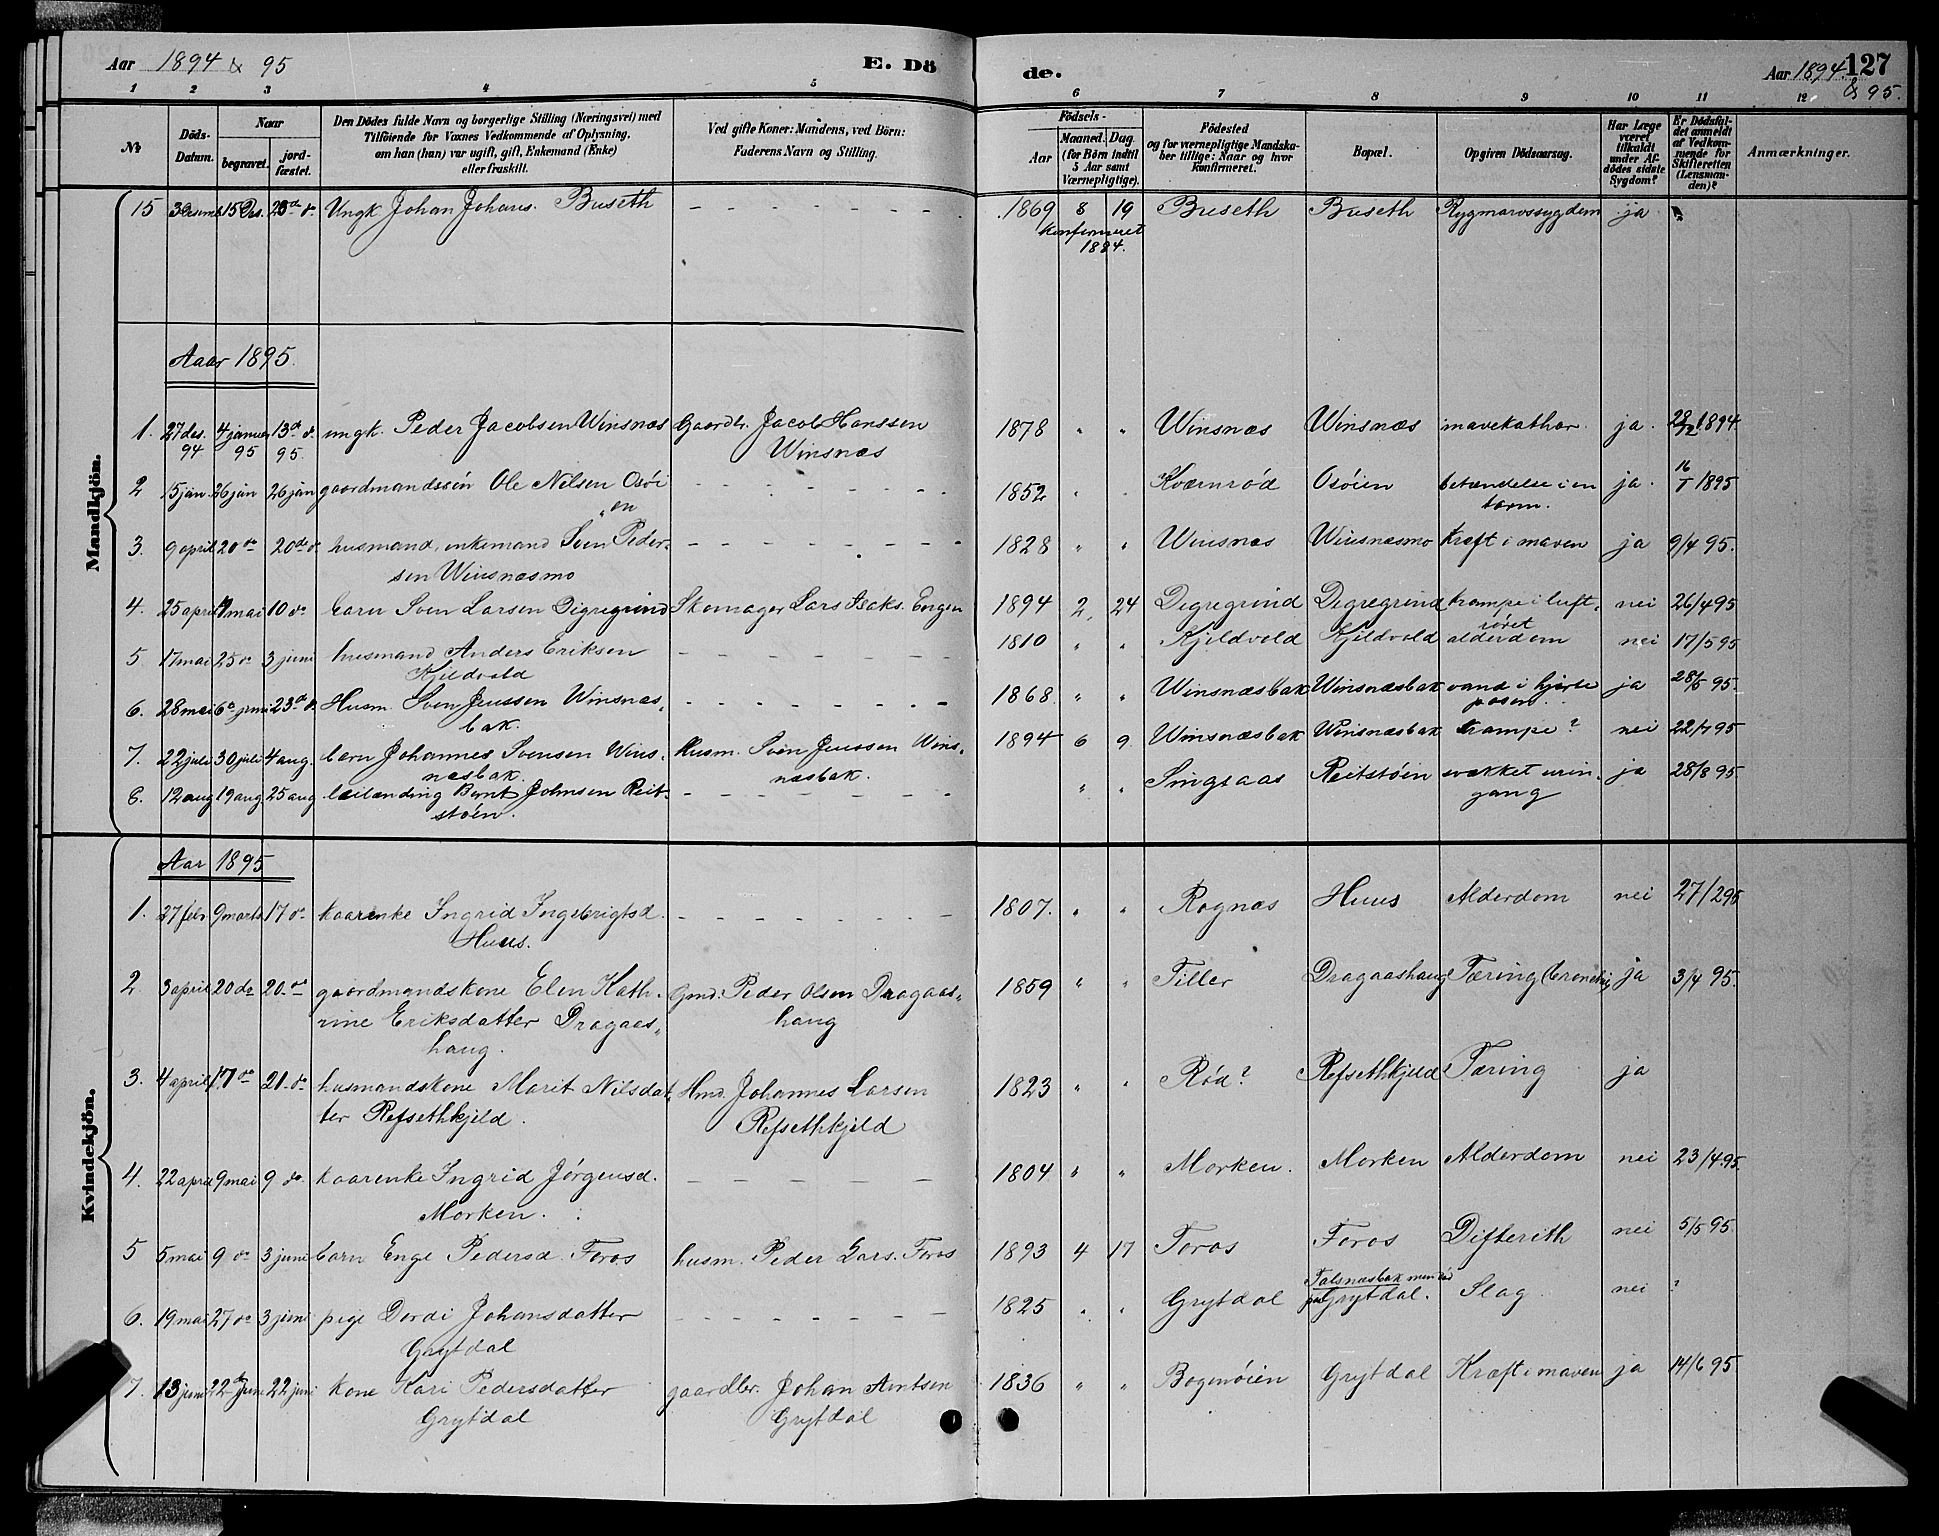 Aar 1894 & 95 E. Dö
de. Aar 1894 & 95. 127
1 2 3 4 5 6 7 8 9 10 11 12
№ Döds-Datum. Naar begravet. jordfæstet. Den Dödes fulde Navn og borgerlige Stilling (Næringsvei) med Tilföiende for Voxnes Vedkommende af Oplysning, om han (hun) var ugift, gift, Enkemand (Enke) eller fraskilt. Ved gifte Koner: Mandens, ved Börn: Faderens Navn og Stilling. Födsels- Aar Maaned. Dag (for Börn indtil 5 Aar samt Værnepligtige). Födested og for værnepligtige Mandskaber tillige: Naar og hvor Konfirmeret. Bopæl. Opgiven Dödsaarsag. Har Læge været tilkaldt under Afdödes sidste Sygdom? Er Dödsfaldet anmeldt af Vedkommende for Skifteretten (Lensmanden)? Anmærkninger.
Mandkjön.
15 15 Des. 23de do Ungk Johan Johans. Buseth 1869 8 19 Buseth Buseth Rygmarvssygdom ja
konfirmeret
1884.
Aaar 1895.
1. 27 des. 4 januar 13de do. ungk. Peder Jacobsen Winsnæs Gaardbr. Jacob Hanssen 1878 " " Winsnæs Winsnæs mavekathar. ja. 28/12 1894
94 95 95. Winsnæs
2 15 jan. 26 jan 26 jan gaardmandssön Ole Nilsen Osöi 1852 " " Kværnröd Osöien betændelse i en ja. 16/1 1895
"en tarm.
3. 9 april 20 do 20 do. husmand, enkemand Sven Peder- 1828 " " Winsnæs Winsnæsmo Kræft i maven ja 9/4 95.
sen Winsnæsmo
4. 25 april mai 10 do barn Sven Larsen Digregrind Skomager Lars Isaks. Engen 1894 2 24 Digregrind Digregrind krampe i luft- nei 26/4 95
röret
5. 17 mai 25 do 3 juni husmand Anders Eriksen 1810 " " Kjeldvold Kjeldvold alderdom nei 17/5 95
Kjeldvold
6. 28 mai 6 juni 23de do. Husm. Sven Jenssen Winsnæs- 1868 " " Winsnæsbak Winsnæsbak vand i hjerte ja 28/5 95.
bak. posen.
7. 22 juli 30 juli 4 aug. barn Johannes Svensen Wins- Husm. Sven Jenssen Wins- 1894 6 9. Winsnæsbak Winsnæsbak krampe? nei 22/7 95
næsbak. næsbak.
8. 12 aug 19 aug 25 aug leilænding Bernt Johnsen Reit- " " Singsaas Reitstöen svækket urin- ja 28/8 95
stöen. gang
Kvindekjön.
Aar 1895
1. 27 febr 9 marts 17 do kaarenke Ingrid Ingebrigtsd. 1807. " " Rognæs Huus Alderdom nei 27/2 95
Huus.
2 3 april 20 do 20 do gaardmandskone Elen Kath- Gmd. Peder Olsen Dragaas- 1859 " " Tiller Dragaashaug Tæring ja 3/4 95.
rine Eriksdatter Dragaas- haug
haug.
3. 4 april 17 do 21 do husmandskone Marit Nilsdat- Hmd. Johannes Larsen 1823 " " Röd? Refsethkjeld Tæring ja
ter Refsethkjeld. Refsethkjeld
4. 22 april 9 mai 9 do. kaarenke Ingrid Jörgensd. 1804 " " Morken. Morken Alderdom nei 23/4 95.
Morken.
5 5 mai 9 do 3 juni barn Enge Pedersd. Foros husm. Peder Lars. Foros 1893 4 17 Foros Foros Difterith nei 5/5 95.
6. 19 mai 27 do 3 juni pige Dordi Johansdatter 1825 " " Grytdal Talsnæsbak men död paa Grytdal. Slag. nei ?
Grytdal
7. 13 juni 22 juni 22 juni kone Kari Pedersdatter gaardbr. Johan Arntsen 1836 " " Bogenöien Grytdal Kræft i maven ja 14/6 95
Grytdal Grytdal